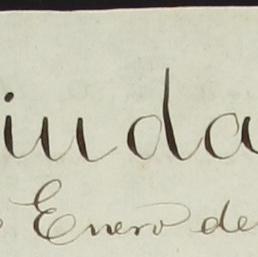 iuda
Enero de